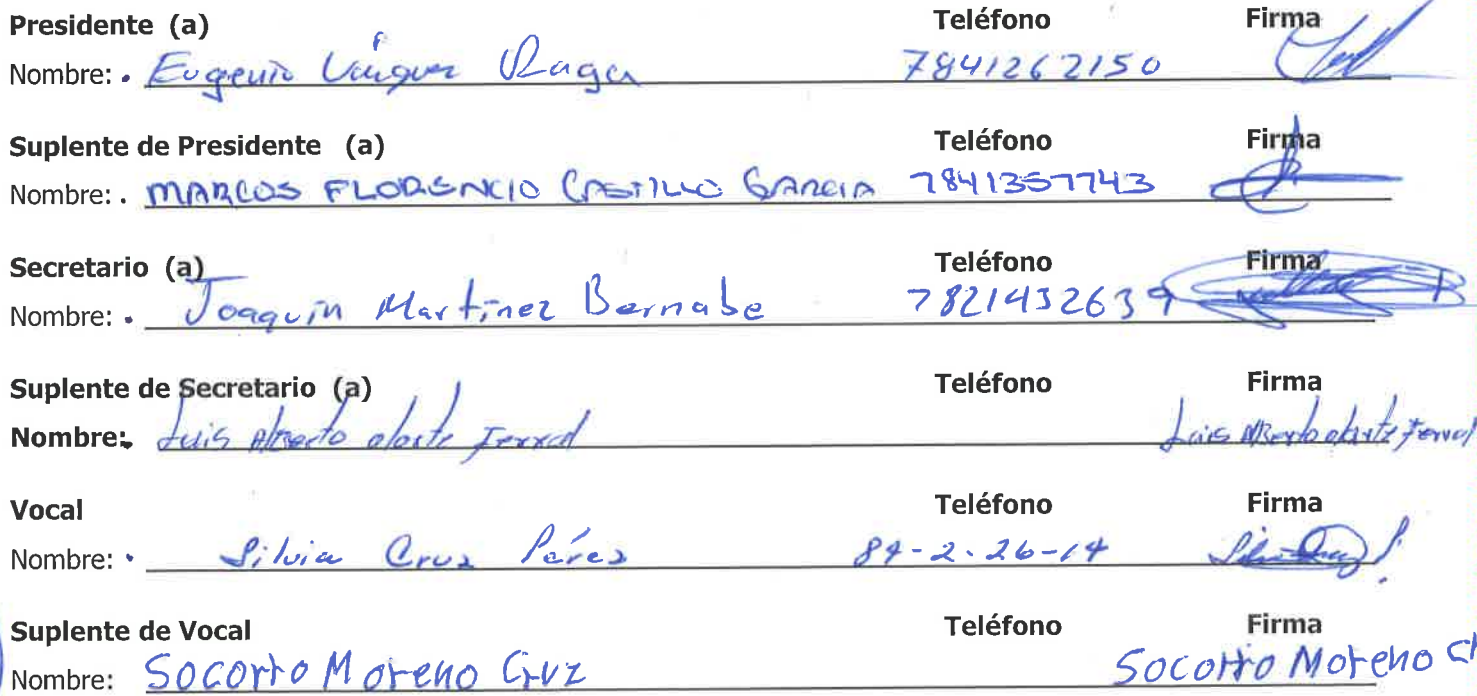 Presidente (a) Teléfono Firma
Nombre: . Eugenio Vázquez Raga 7841262150
Suplente de Presidente (a) Teléfono Firma
Nombre: . MARCOS FLORENCIO CASTILLO GARCIA 7841357743
Secretario (a) Teléfono Firma
Nombre: . Joaquín Martínez Bernabe 7821432639
Suplente de Secretario (a) Teléfono Firma
Nombre: . Luis Alberto olarte Ferral Luis Alberto olarte Ferral
Vocal Teléfono Firma
Nombre: . Silvia Cruz Pérez 84-2-26-14
Suplente de Vocal Teléfono Firma
Nombre: Socorro Moreno Cruz Socorro Moreno